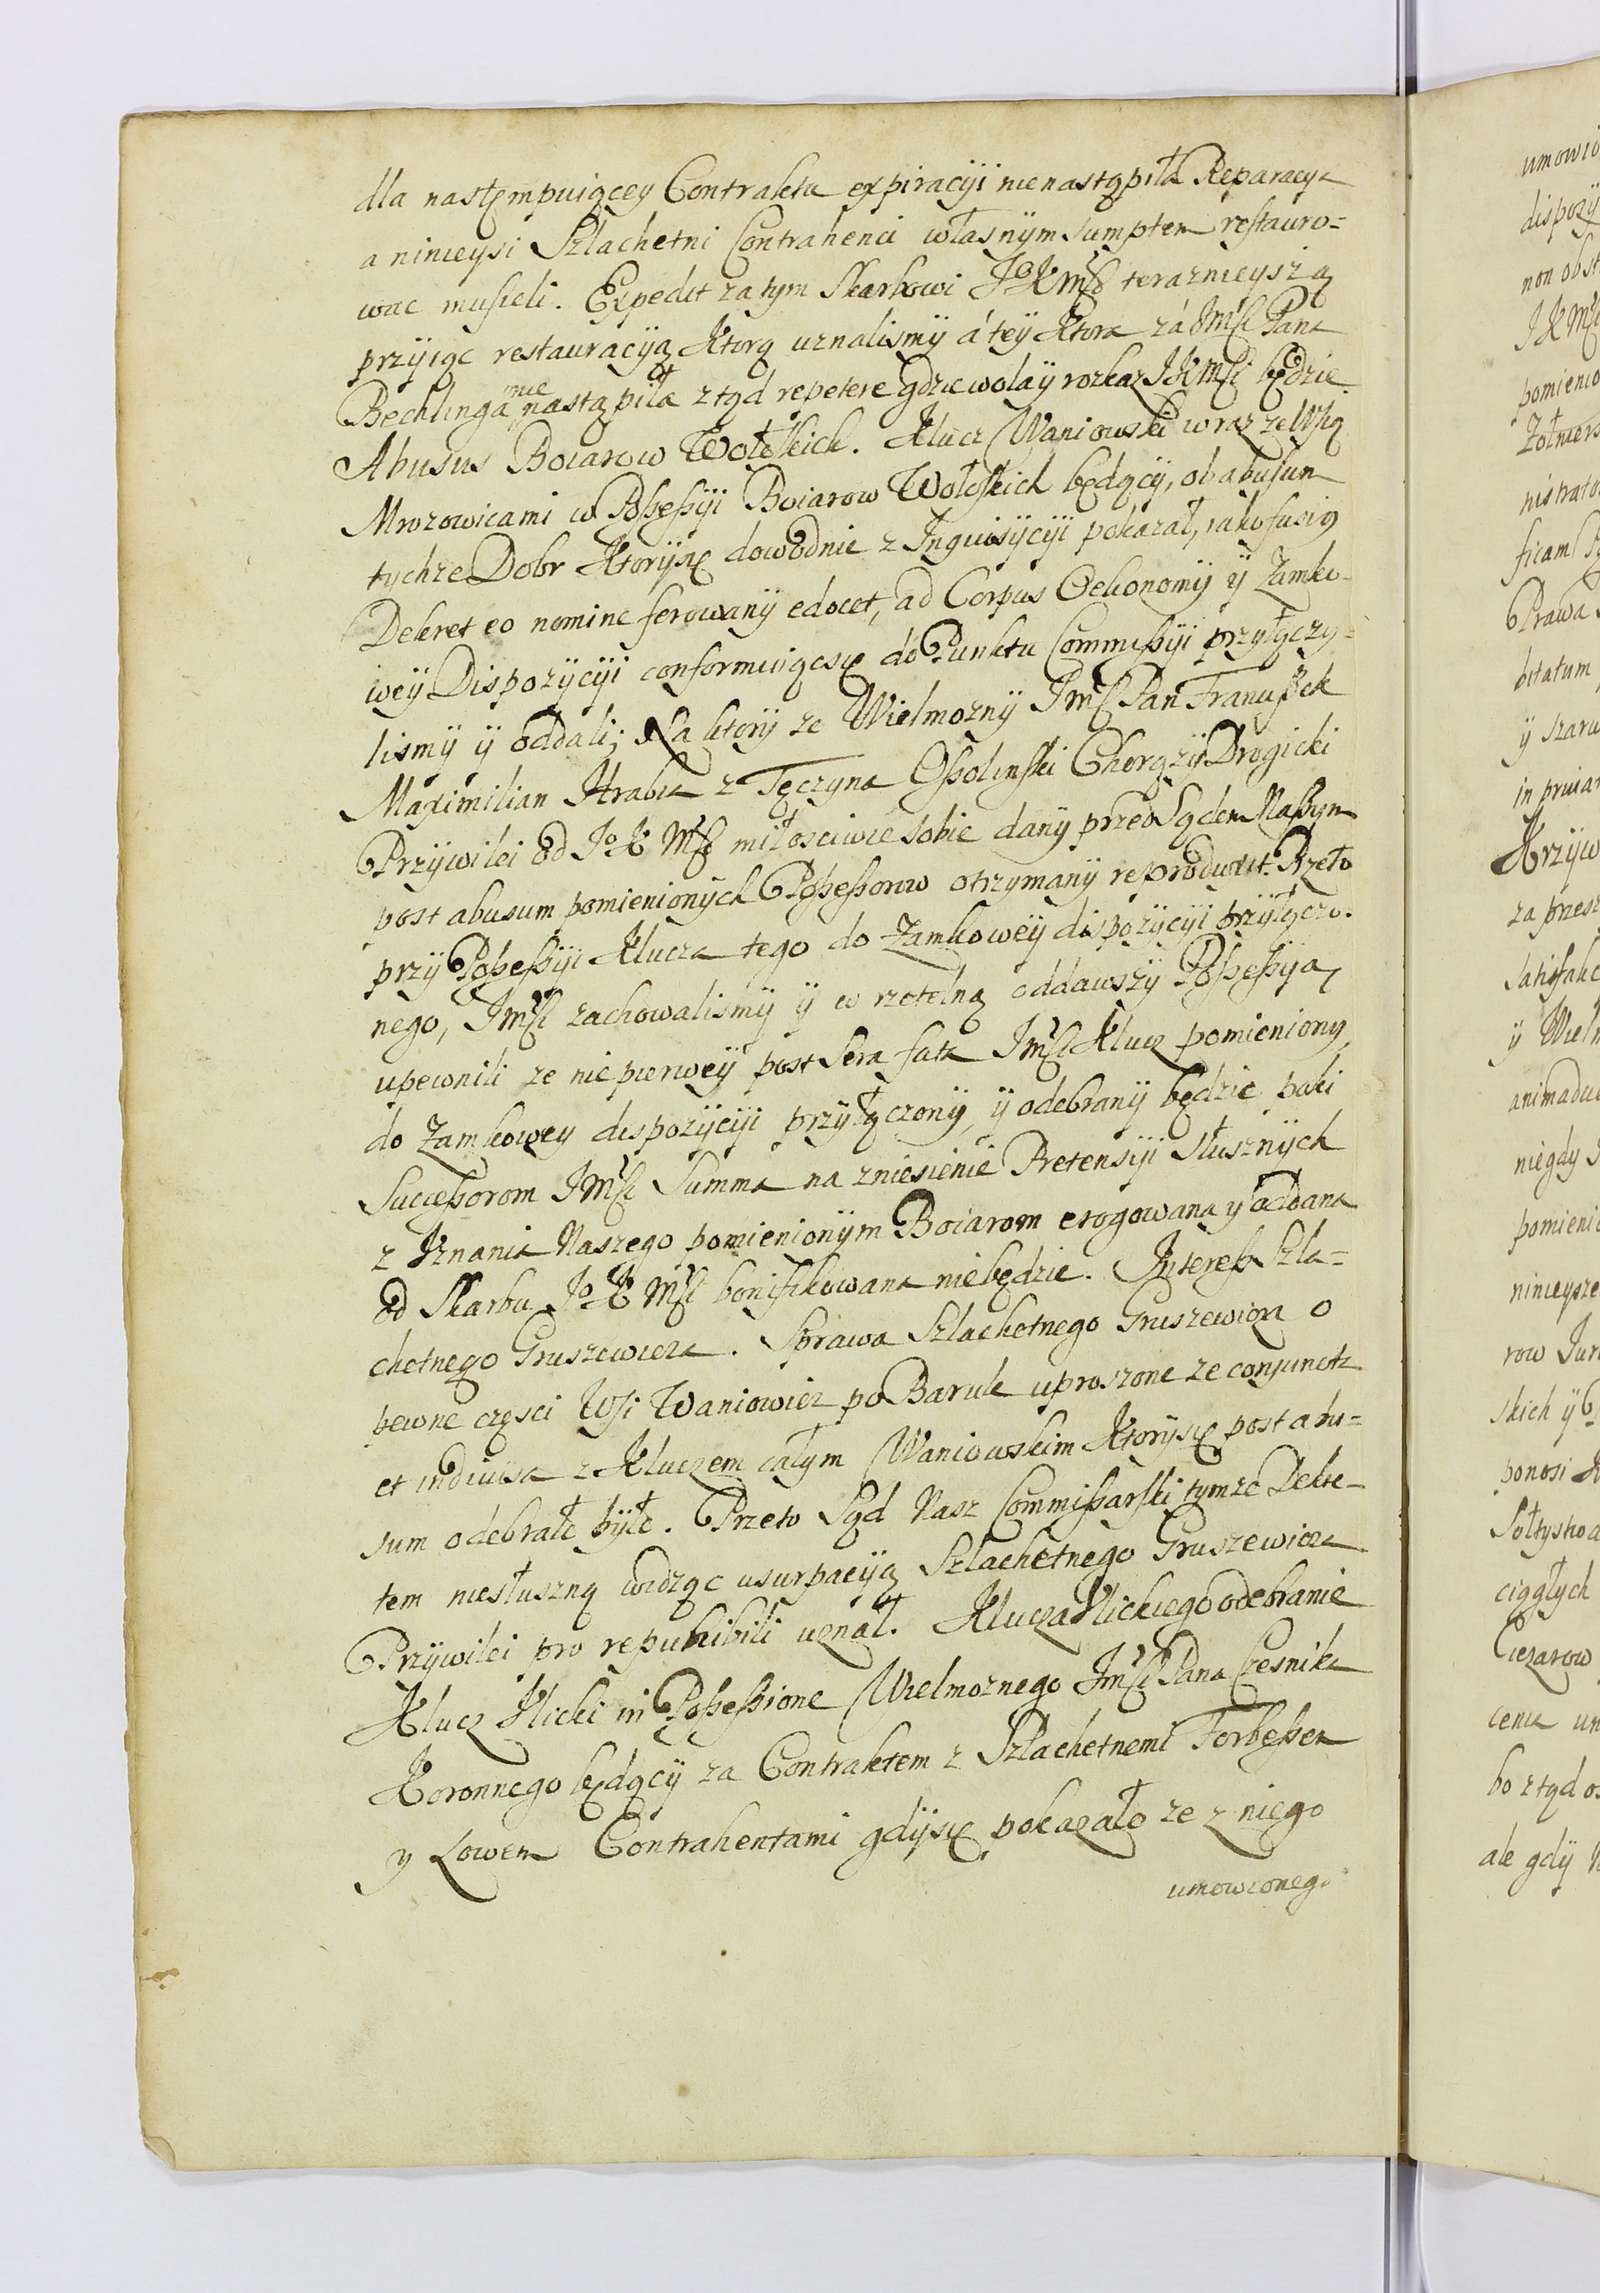 dla następuiącey Contraktu expiracyi nie nastąpiła Reparacya
a ninieysi Szlachetni Contrahenci własnym sumptem restauro=
wac musieli. Expedit zatym Skarbowi JoKMsc teraznieyszą
przyiąc restauracyią ktorą uznalismy a tey ktora za JMsci Pana
Bechlinga nie nastąpiła ztąd repetere gdzie wola y rozkaz JKMsci będzie
Abusus Boiarow Wołoskich. Klucz Waniowski wraz ze Wsią
Mrozowicami w Possessyi Boiarow Wołoskich będący, ob abusum
tychze Dobr ktory się dowodnie z Inquisycyi pokazał, iako fusius
Dekret eo nomine ferowany edocet, ad Corpus Oekonomij y Zamko-
wey Dispozycyi conformuiąc się do Punktu Commissyi przyłączy=
lismy y oddali; Na ktory ze Wielmozny JMsc Pan Franciszek
Maximilian Hrabia z Tęczyna Ossolinski Chorązy Drogicki
Przywilei od Jo K Msc miłosciwie sobie dany przed Sądem Naszym
post abusum pomienionych Possessorow otrzymany reproduxit. Przeto
przy Possessyi Klucza tego do Zamkowey dispozycyi przyłączo-
nego, JMsci zachowalismy y w rzetelną oddawszy Possessyą,
upewnili ze nie pierwey post sera fata JMsci Klucz pomieniony
do Zamkowey dispozycyi przyłączony, y odebrany będzie poki
Successorom JMsci Summa na zniesienie Pretensyi słusznych
z Uznania Naszego pomienionym Boiarom erogowana y oddana
od Skarbu Jo K Msci bonifikowana nie będzie. Interess Szla=
chetnego Gruszewicza. Sprawa Szlachetnego Gruszewicza o
pewne częsci Wsi Waniowicz po Barule uproszone ze conjuncta
et indivisa z Kluczem całym Waniowskim ktory się post abu=
sum odebrało było. Przeto Sąd Nasz Commissarski tymze Dekre-
tem niesłuszną widząc usurpacyią Szlachetnego Gruszewicza
Przywilei pro repuhibili uznał. Klucza Ilickiego odebranie
Klucz Ilicki in Possessione Wielmoznego JMsci Pana Czesnika
Koronnego będący za Contraktem z Szlachetnemi Forbessem
y Lowem Contrahentami gdy się pokazało ze z niego
umowionego